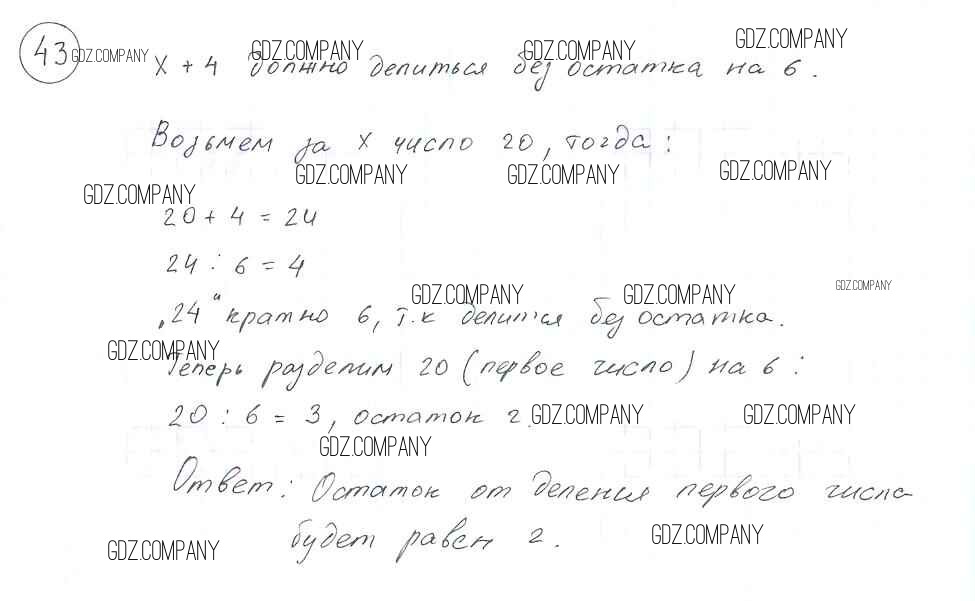 43 GDZ.COMPANY GDZ.COMPANY GDZ.COMPANY GDZ.COMPANY
x + 4 должно делиться без остатка на 6.
Возьмем за x число 20, тогда:
GDZ.COMPANY GDZ.COMPANY GDZ.COMPANY GDZ.COMPANY
20 + 4 = 24
24 : 6 = 4
GDZ.COMPANY GDZ.COMPANY GDZ.COMPANY
„24“ кратно 6, т.к делится без остатка.
GDZ.COMPANY
Теперь разделим 20 (первое число) на 6:
20 : 6 = 3, остаток 2. GDZ.COMPANY GDZ.COMPANY
GDZ.COMPANY
Ответ: Остаток от деления первого числа
будет равен 2. GDZ.COMPANY
GDZ.COMPANY